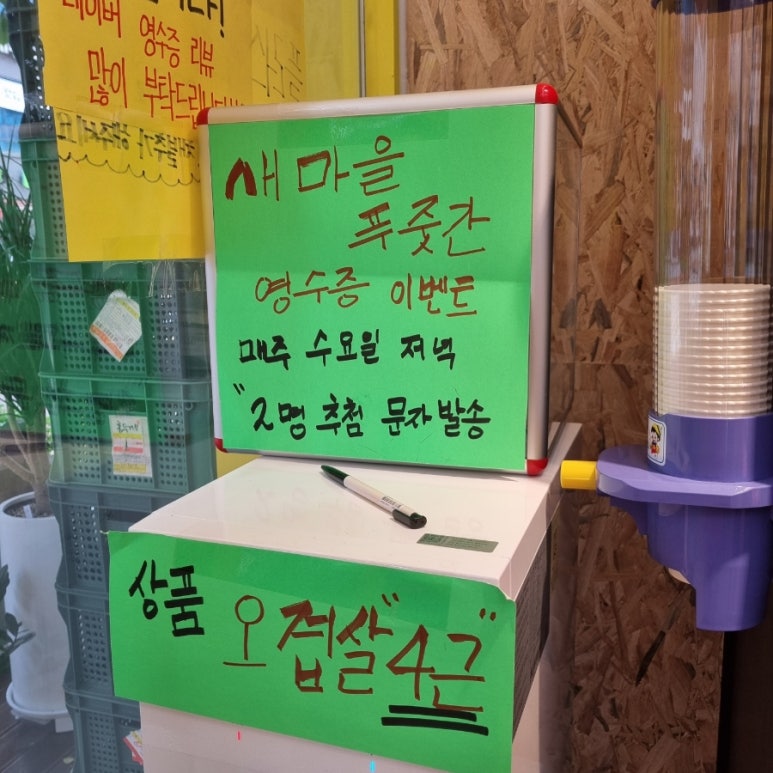 네이버 영수증 리뷰
많이 부탁드립니다
새마을
푸줏간
영수증 이벤트
매주 수요일 저녁
"2명 추첨 문자발송
상품 오겹살 "4근"